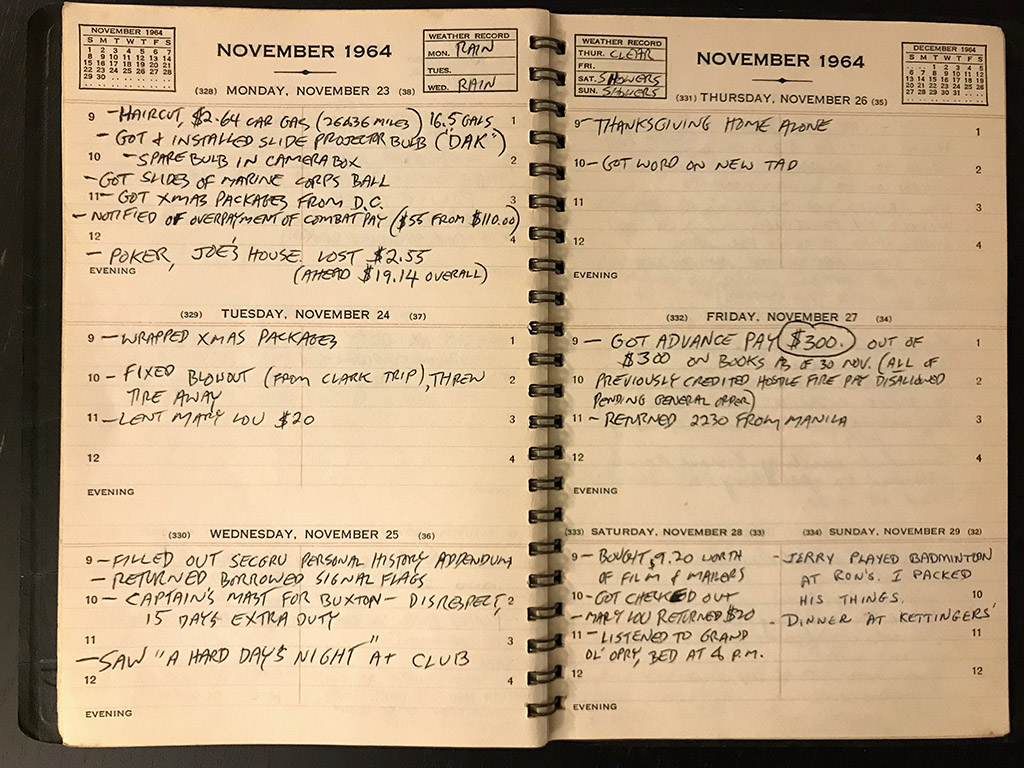 NOVEMBER 1964
S M T W T F S
1 2 3 4 5 6 7
8 9 10 11 12 13 14
15 16 17 18 19 20 21
22 23 24 25 26 27 28
29 30
NOVEMBER 1964
WEATHER RECORD
MON. RAIN
TUES.
WED. RAIN
(328) MONDAY, NOVEMBER 23 (38)
9 - HAIRCUT, $2.64 CAR GAS (26636 MILES) 16.5 GALS 1
- GOT & INSTALLED SLIDE PROJECTOR BULB ("DAK")
10 - SPARE BULB IN CAMERA BOX 2
- GOT SLIDES OF MARINE CORPS BALL
11 - GOT XMAS PACKAGES FROM D.C. 3
- NOTIFIED OF OVERPAYMENT OF COMBAT PAY ($55 FROM $110.00)
12 4
- POKER, JOE'S HOUSE. LOST $2.55
EVENING (AHEAD $19.14 OVERALL)
(329) TUESDAY, NOVEMBER 24 (37)
9 - WRAPPED XMAS PACKAGES 1
10 - FIXED BLOWOUT (FROM CLARK TRIP), THREW 2
TIRE AWAY
11 - LENT MARY LOU $20 3
12 4
EVENING
(330) WEDNESDAY, NOVEMBER 25 (36)
9 - FILLED OUT SECGRU PERSONAL HISTORY ADDENDUM
- RETURNED BORROWED SIGNAL FLAGS
10 - CAPTAIN'S MAST FOR BUXTON - DISRESPECT, 2
15 DAYS EXTRA DUTY
11 3
- SAW "A HARD DAY'S NIGHT" AT CLUB
12 4
EVENING
WEATHER RECORD
THUR. CLEAR
FRI.
SAT. SHOWERS
SUN. SHOWERS
NOVEMBER 1964
DECEMBER 1964
S M T W T F S
1 2 3 4 5
6 7 8 9 10 11 12
13 14 15 16 17 18 19
20 21 22 23 24 25 26
27 28 29 30 31
(331) THURSDAY, NOVEMBER 26 (35)
9 - THANKSGIVING HOME ALONE 1
10 - GOT WORD ON NEW TAD 2
11 3
12 4
EVENING
(332) FRIDAY, NOVEMBER 27 (34)
9 - GOT ADVANCE PAY $300. OUT OF 1
$300 ON BOOKS AS OF 30 NOV. (ALL OF
10 PREVIOUSLY CREDITED HOSTILE FIRE PAY DISALLOWED 2
PENDING GENERAL ORDER)
11 - RETURNED 2230 FROM MANILA 3
12 4
EVENING
(333) SATURDAY, NOVEMBER 28 (33)
9 - BOUGHT $9.20 WORTH
OF FILM & MAILERS
10 - GOT CHECKED OUT
- MARY LOU RETURNED $20
11 - LISTENED TO GRAND
OL' OPRY, BED AT 4 P.M.
12
EVENING
(334) SUNDAY, NOVEMBER 29 (32)
- JERRY PLAYED BADMINTON 9
AT RON'S. I PACKED
HIS THINGS. 10
- DINNER AT KETTINGERS'
11
12